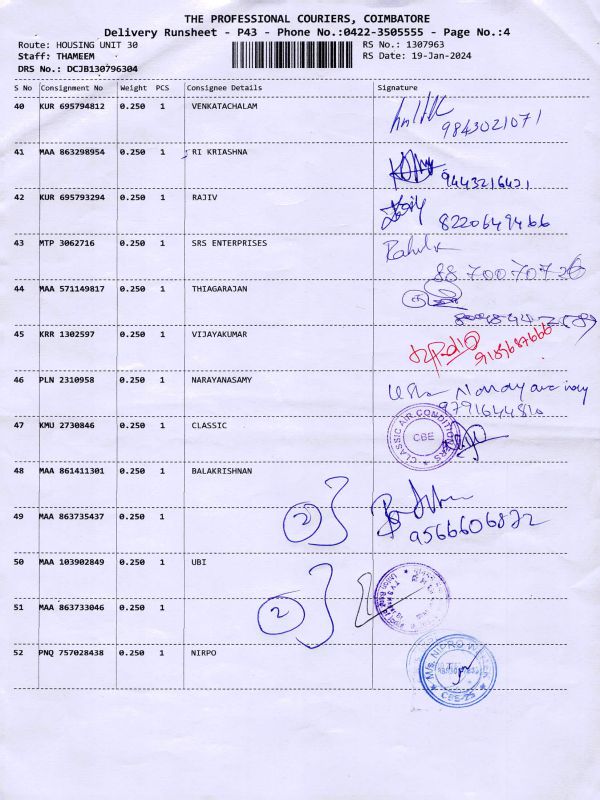 THE PROFESSIONAL COURIERS, COIMBATORE
Delivery Runsheet - P43 - Phone No.:0422-3505555 - Page No.:4
Route: HOUSING UNIT 30 RS No.: 1307963
Staff: THAMEEM RS Date: 19-Jan-2024
DRS No.: DCJB130796304
S No Consignment No Weight PCS Consignee Details Signature
40 KUR 695794812 0.250 1 VENKATACHALAM
9843021071
41 MAA 863298954 0.250 1 RI KRIASHNA
9443216421
42 KUR 695793294 0.250 1 RAJIV
8220649466
43 MTP 3062716 0.250 1 SRS ENTERPRISES Rahul
8870070726
44 MAA 571149817 0.250 1 THIAGARAJAN
45 KRR 1302597 0.250 1 VIJAYAKUMAR
46 PLN 2310958 0.250 1 NARAYANASAMY
9791644810
47 KMU 2730846 0.250 1 CLASSIC CLASSIC AIR CONDITIONERS CBE
48 MAA 861411301 0.250 1 BALAKRISHNAN
49 MAA 863735437 0.250 1 2
9566606872
50 MAA 103902849 0.250 1 UBI
51 MAA 863733046 0.250 1 2
52 PNQ 757028438 0.250 1 NIRPO